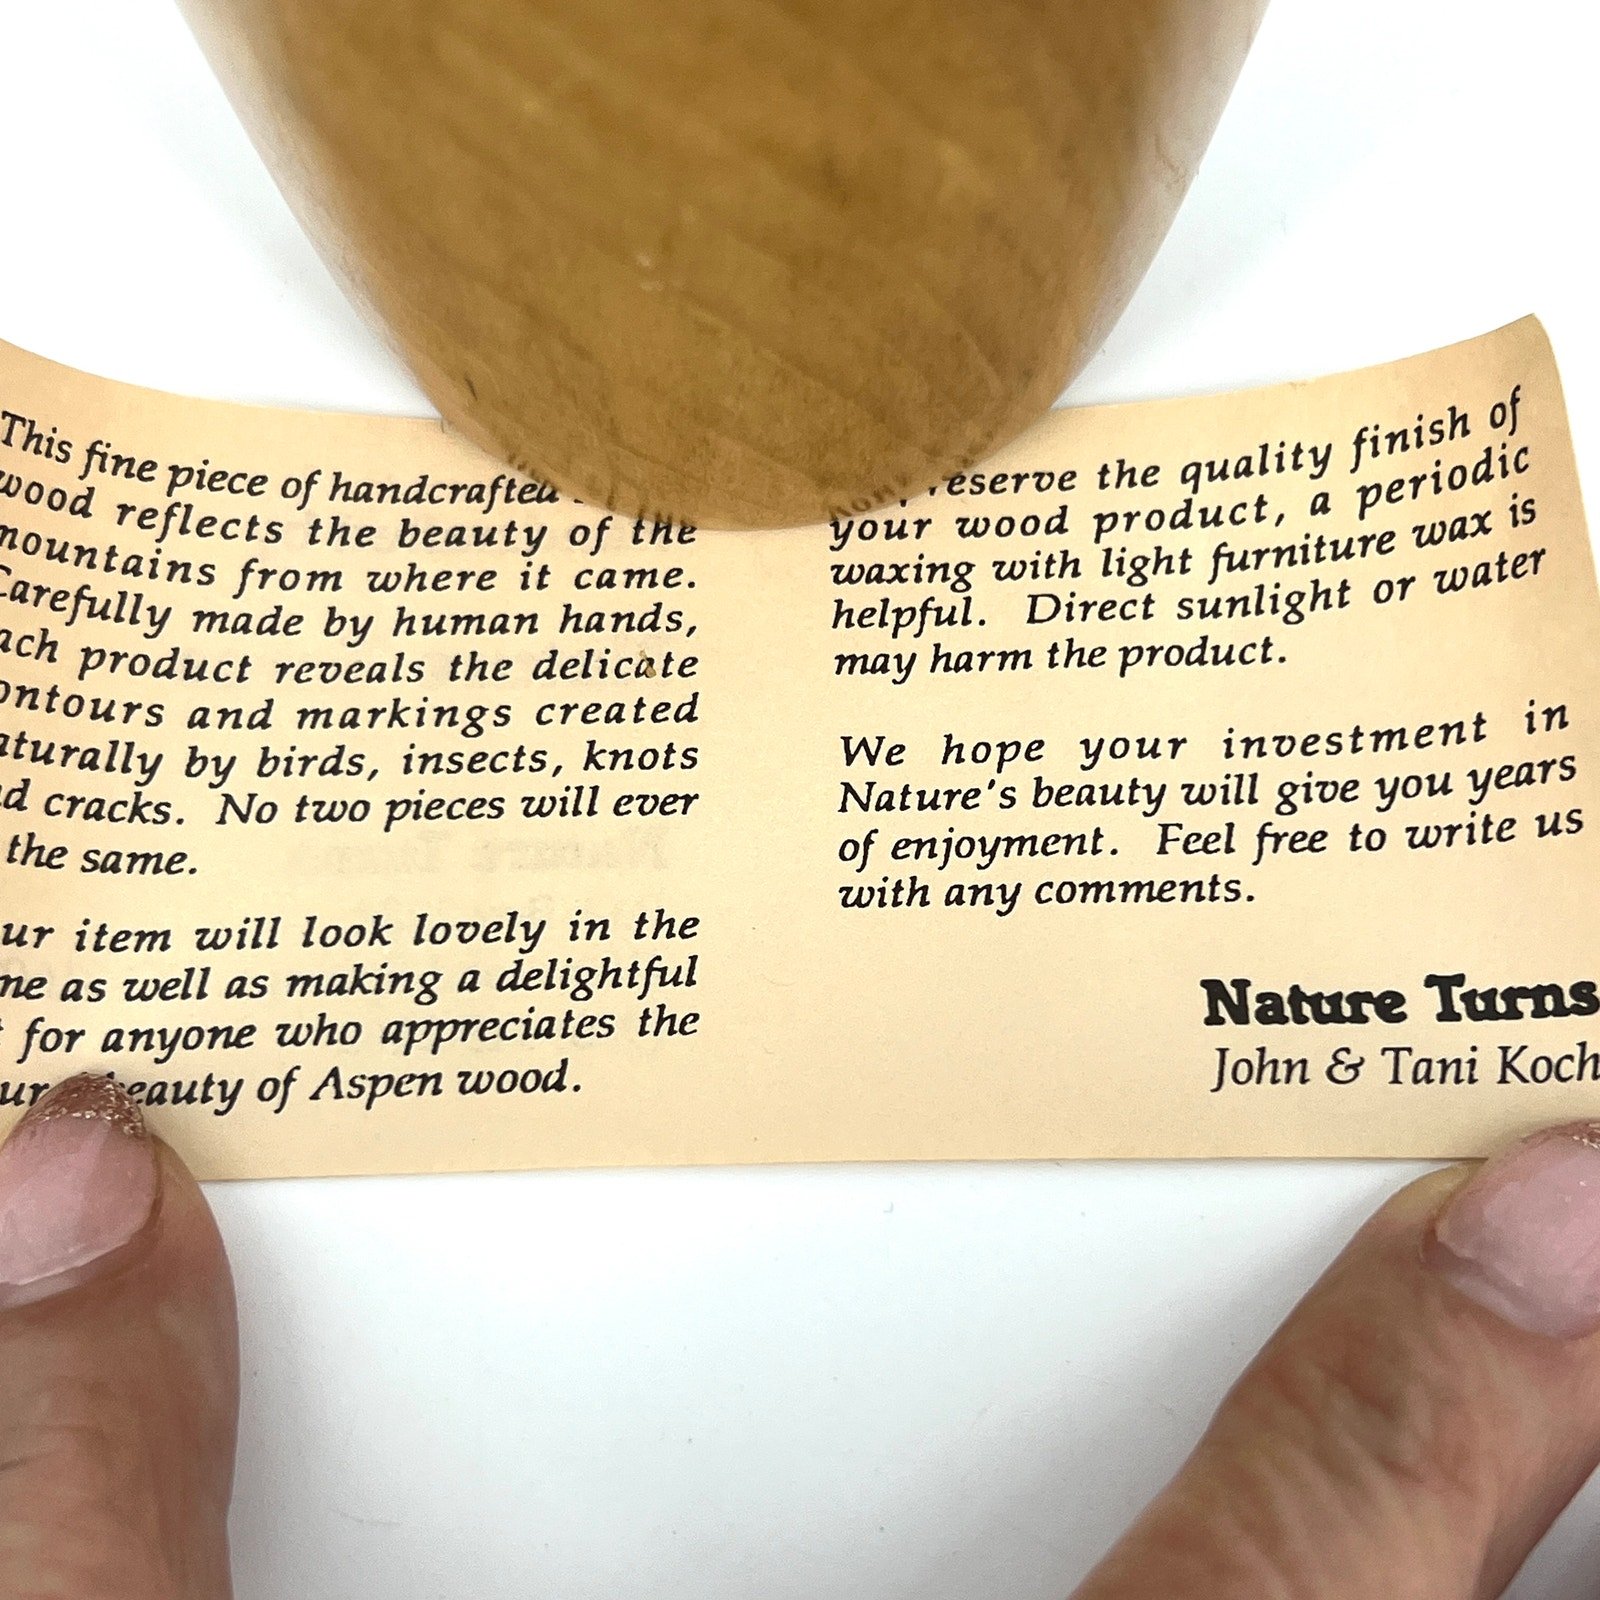 This fine piece of handcrafted
wood reflects the beauty of the
mountains from where it came.
Carefully made by human hands,
ach product reveals the delicate
ontours and markings created
aturally by birds, insects, knots
d cracks. No two pieces will ever
the same.
ur item will look lovely in the
me as well as making a delightful
for anyone who appreciates the
beauty of Aspen wood.
reserve the quality finish of
your wood product, a periodic
waxing with light furniture wax is
helpful. Direct sunlight or water
may harm the product.
We hope your investment in
Nature's beauty will give you years
of enjoyment. Feel free to write us
with any comments.
Nature Turns
John & Tani Koch